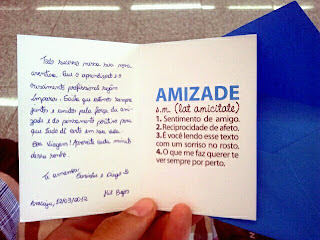 Todo sucesso nessa sua nova
aventura. Que o aprendizado e o
crescimento profissional sejam
ímpares. Saiba que estamos sempre
juntos e unidos pela força da ami-
zade e do pensamento positivo para
que tudo dê certo em sua vida.
Boa Viagem! Aproveite cada minuto
desse sonho.
Te amamos
Caroline e
Mil Beijos
Aracaju, 12/03/2012
AMIZADE
s.m (lat amicitate)
1. Sentimento de amigo.
2. Reciprocidade de afeto.
3. É você lendo esse texto
com um sorriso no rosto.
4. O que me faz querer te
ver sempre por perto.